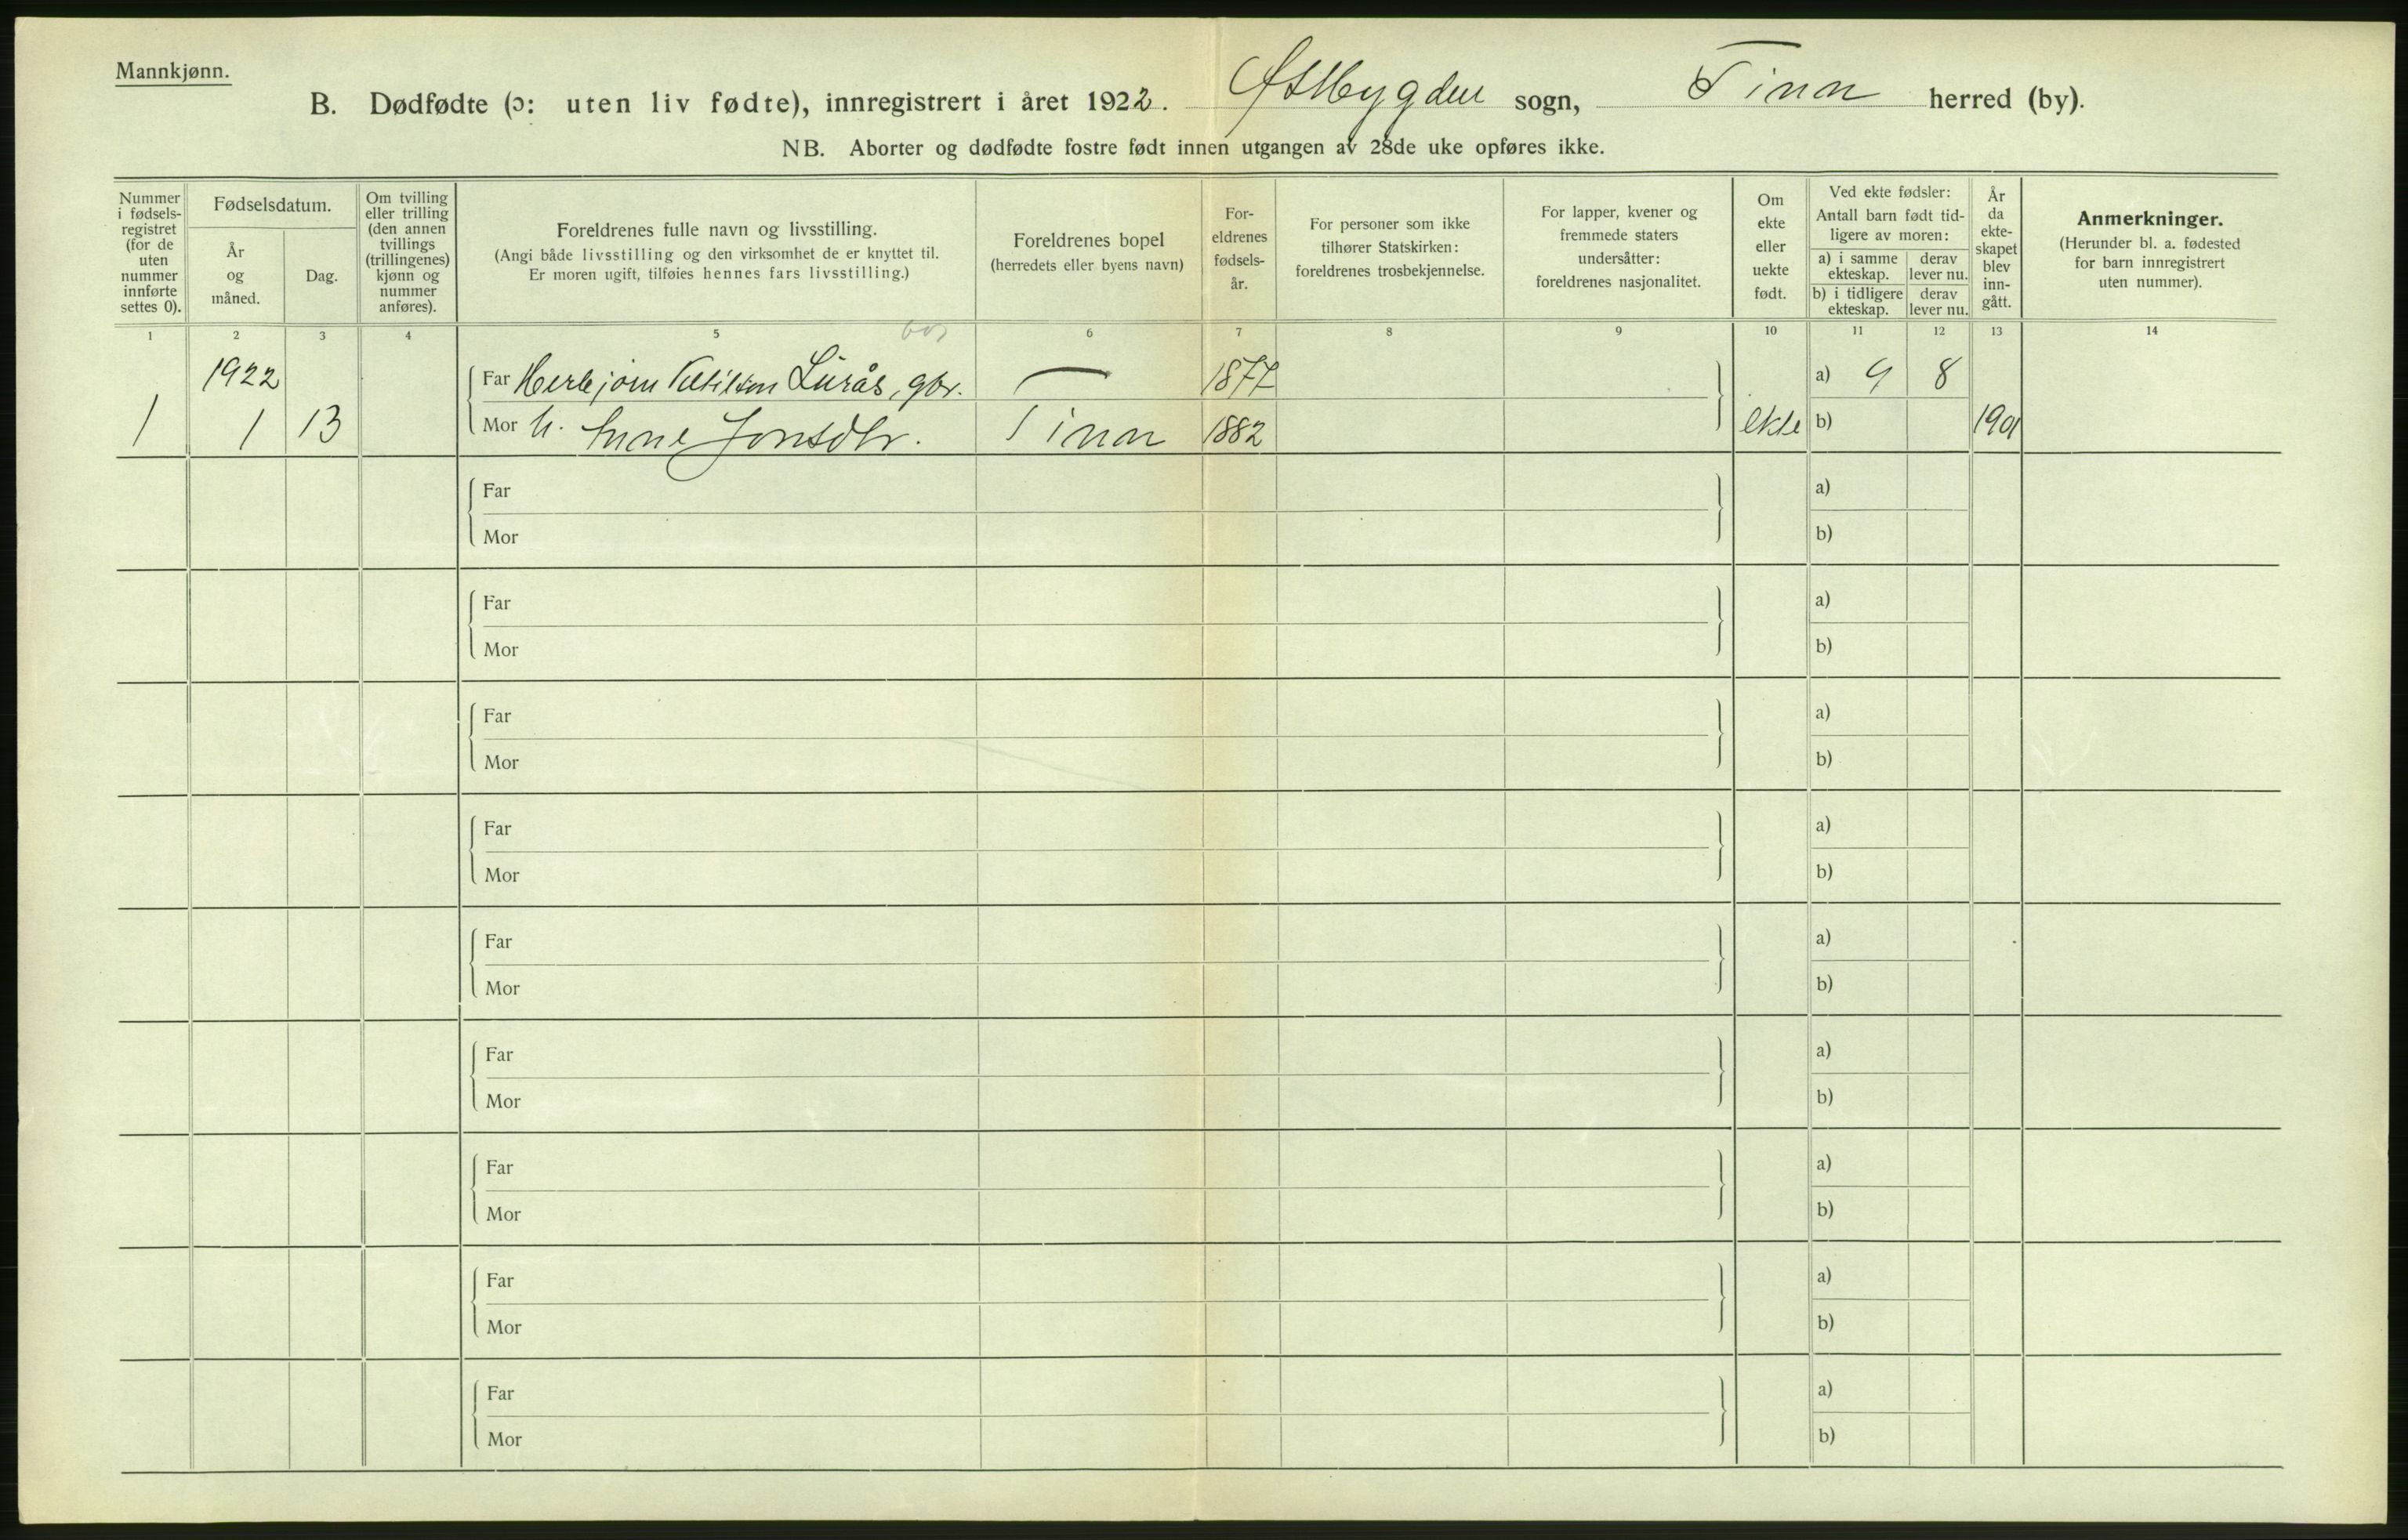 Mannkjønn.
B. Dødfødte (ɔ: uten liv fødte), innregistrert i året 1922. Østbygden sogn, Tinn herred (by).
NB. Aborter og dødfødte fostre født innen utgangen av 28de uke opføres ikke.
Nummer i fødsels-registret (for de uten nummer innførte settes 0).
Fødselsdatum.
År og måned.
Dag.
Om tvilling eller trilling (den annen tvillings (trillingenes) kjønn og nummer anføres).
Foreldrenes fulle navn og livsstilling.
(Angi både livsstilling og den virksomhet de er knyttet til.
Er moren ugift, tilføies hennes fars livsstilling.)
Foreldrenes bopel
(herredets eller byens navn)
For-eldrenes fødsels-år.
For personer som ikke tilhører Statskirken: foreldrenes trosbekjennelse.
For lapper, kvener og fremmede staters undersåtter: foreldrenes nasjonalitet.
Om ekte eller uekte født.
Ved ekte fødsler:
Antall barn født tid-ligere av moren:
a) i samme ekteskap.
derav lever nu.
b) i tidligere ekteskap.
derav lever nu.
År da ekte-skapet blev inn-gått.
Anmerkninger.
(Herunder bl. a. fødested for barn innregistrert uten nummer).
1 2 3 4 5 6 7 8 9 10 11 12 13 14
1922 Far Herbjørn Ketilsen Lurås, gbr. — 1877 a) 9 8
1 1 13 Mor h. Anne Jonsdtr. Tinn 1882 ekte b) 1901
Far a)
Mor b)
Far a)
Mor b)
Far a)
Mor b)
Far a)
Mor b)
Far a)
Mor b)
Far a)
Mor b)
Far a)
Mor b)
Far a)
Mor b)
Far a)
Mor b)